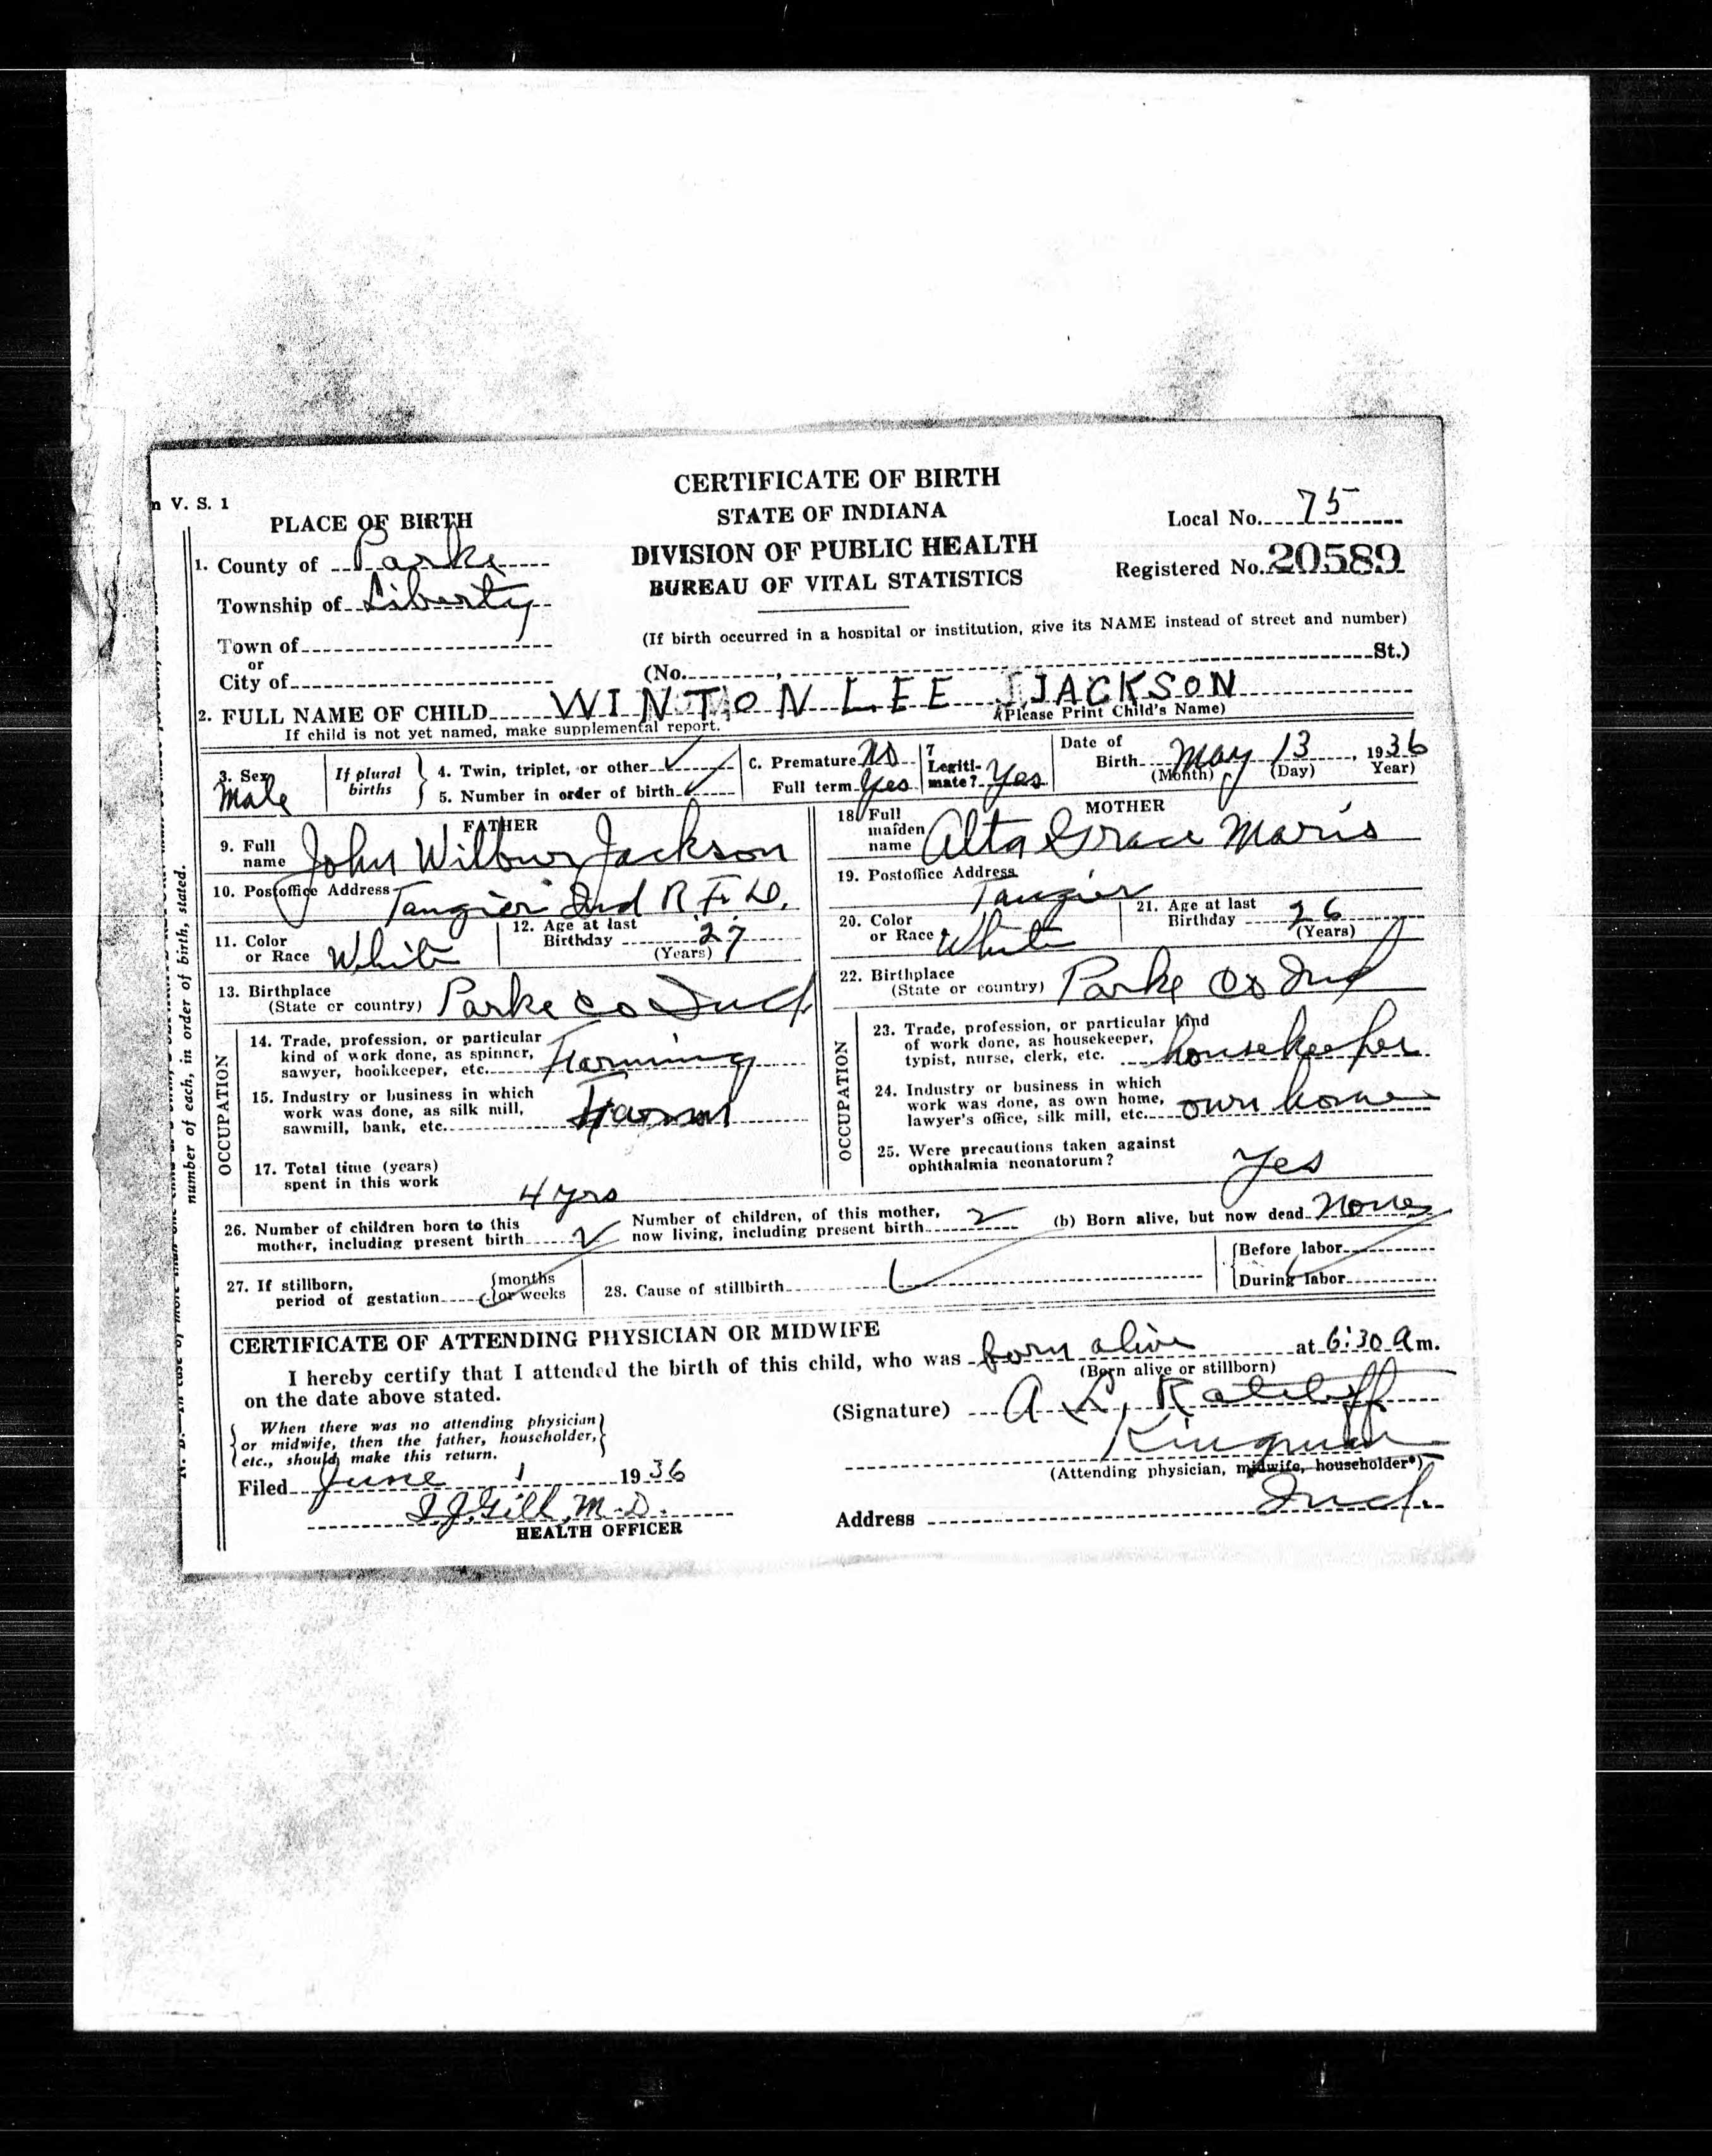 CERTIFICATE OF BIRTH
STATE OF INDIANA
DIVISION OF PUBLIC HEALTH
BUREAU OF VITAL STATISTICS
V. S. 1
PLACE OF BIRTH
Local No. 75
Registered No. 20589
1. County of Parke
Township of Liberty
Town of
or
City of
(If birth occurred in a hospital or institution, give its NAME instead of street and number)
(No. , St.)
2. FULL NAME OF CHILD WINTON LEE JACKSON
If child is not yet named, make supplemental report. (Please Print Child's Name)
3. Sex Male
If plural births
4. Twin, triplet, or other
5. Number in order of birth
C. Premature No
Full term Yes
7 Legitimate? Yes
Date of Birth May 13, 1936
(Month) (Day) Year)
FATHER
9. Full name John Wilbur Jackson
10. Postoffice Address Tangier Ind R.F.D.
11. Color or Race White
12. Age at last Birthday 27
(Years)
13. Birthplace
(State or country) Parke Co Ind
OCCUPATION
14. Trade, profession, or particular
kind of work done, as spinner,
sawyer, bookkeeper, etc. Farming
15. Industry or business in which
work was done, as silk mill,
sawmill, bank, etc. Farm
17. Total time (years)
spent in this work 4 yrs
MOTHER
18. Full maiden name Alta Grace Maris
19. Postoffice Address Tangier
20. Color or Race White
21. Age at last Birthday 26
(Years)
22. Birthplace
(State or country) Parke Co Ind
OCCUPATION
23. Trade, profession, or particular kind
of work done, as housekeeper,
typist, nurse, clerk, etc. housekeeper
24. Industry or business in which
work was done, as own home,
lawyer's office, silk mill, etc. own home
25. Were precautions taken against
ophthalmia neonatorum? Yes
26. Number of children born to this
mother, including present birth 2
Number of children, of this mother,
now living, including present birth 2
(b) Born alive, but now dead None
27. If stillborn,
period of gestation {months or weeks
28. Cause of stillbirth
{Before labor
{During labor
CERTIFICATE OF ATTENDING PHYSICIAN OR MIDWIFE
I hereby certify that I attended the birth of this child, who was born alive at 6:30 a m.
(Born alive or stillborn)
on the date above stated.
{When there was no attending physician
or midwife, then the father, householder,
etc., should make this return.}
(Signature) A L. Ratcliff
Kingman
(Attending physician, midwife, householder*)
Filed June 1 1936
Address Ind.
J.Gill, M.D.
HEALTH OFFICER
number of each, in order of birth, stated.